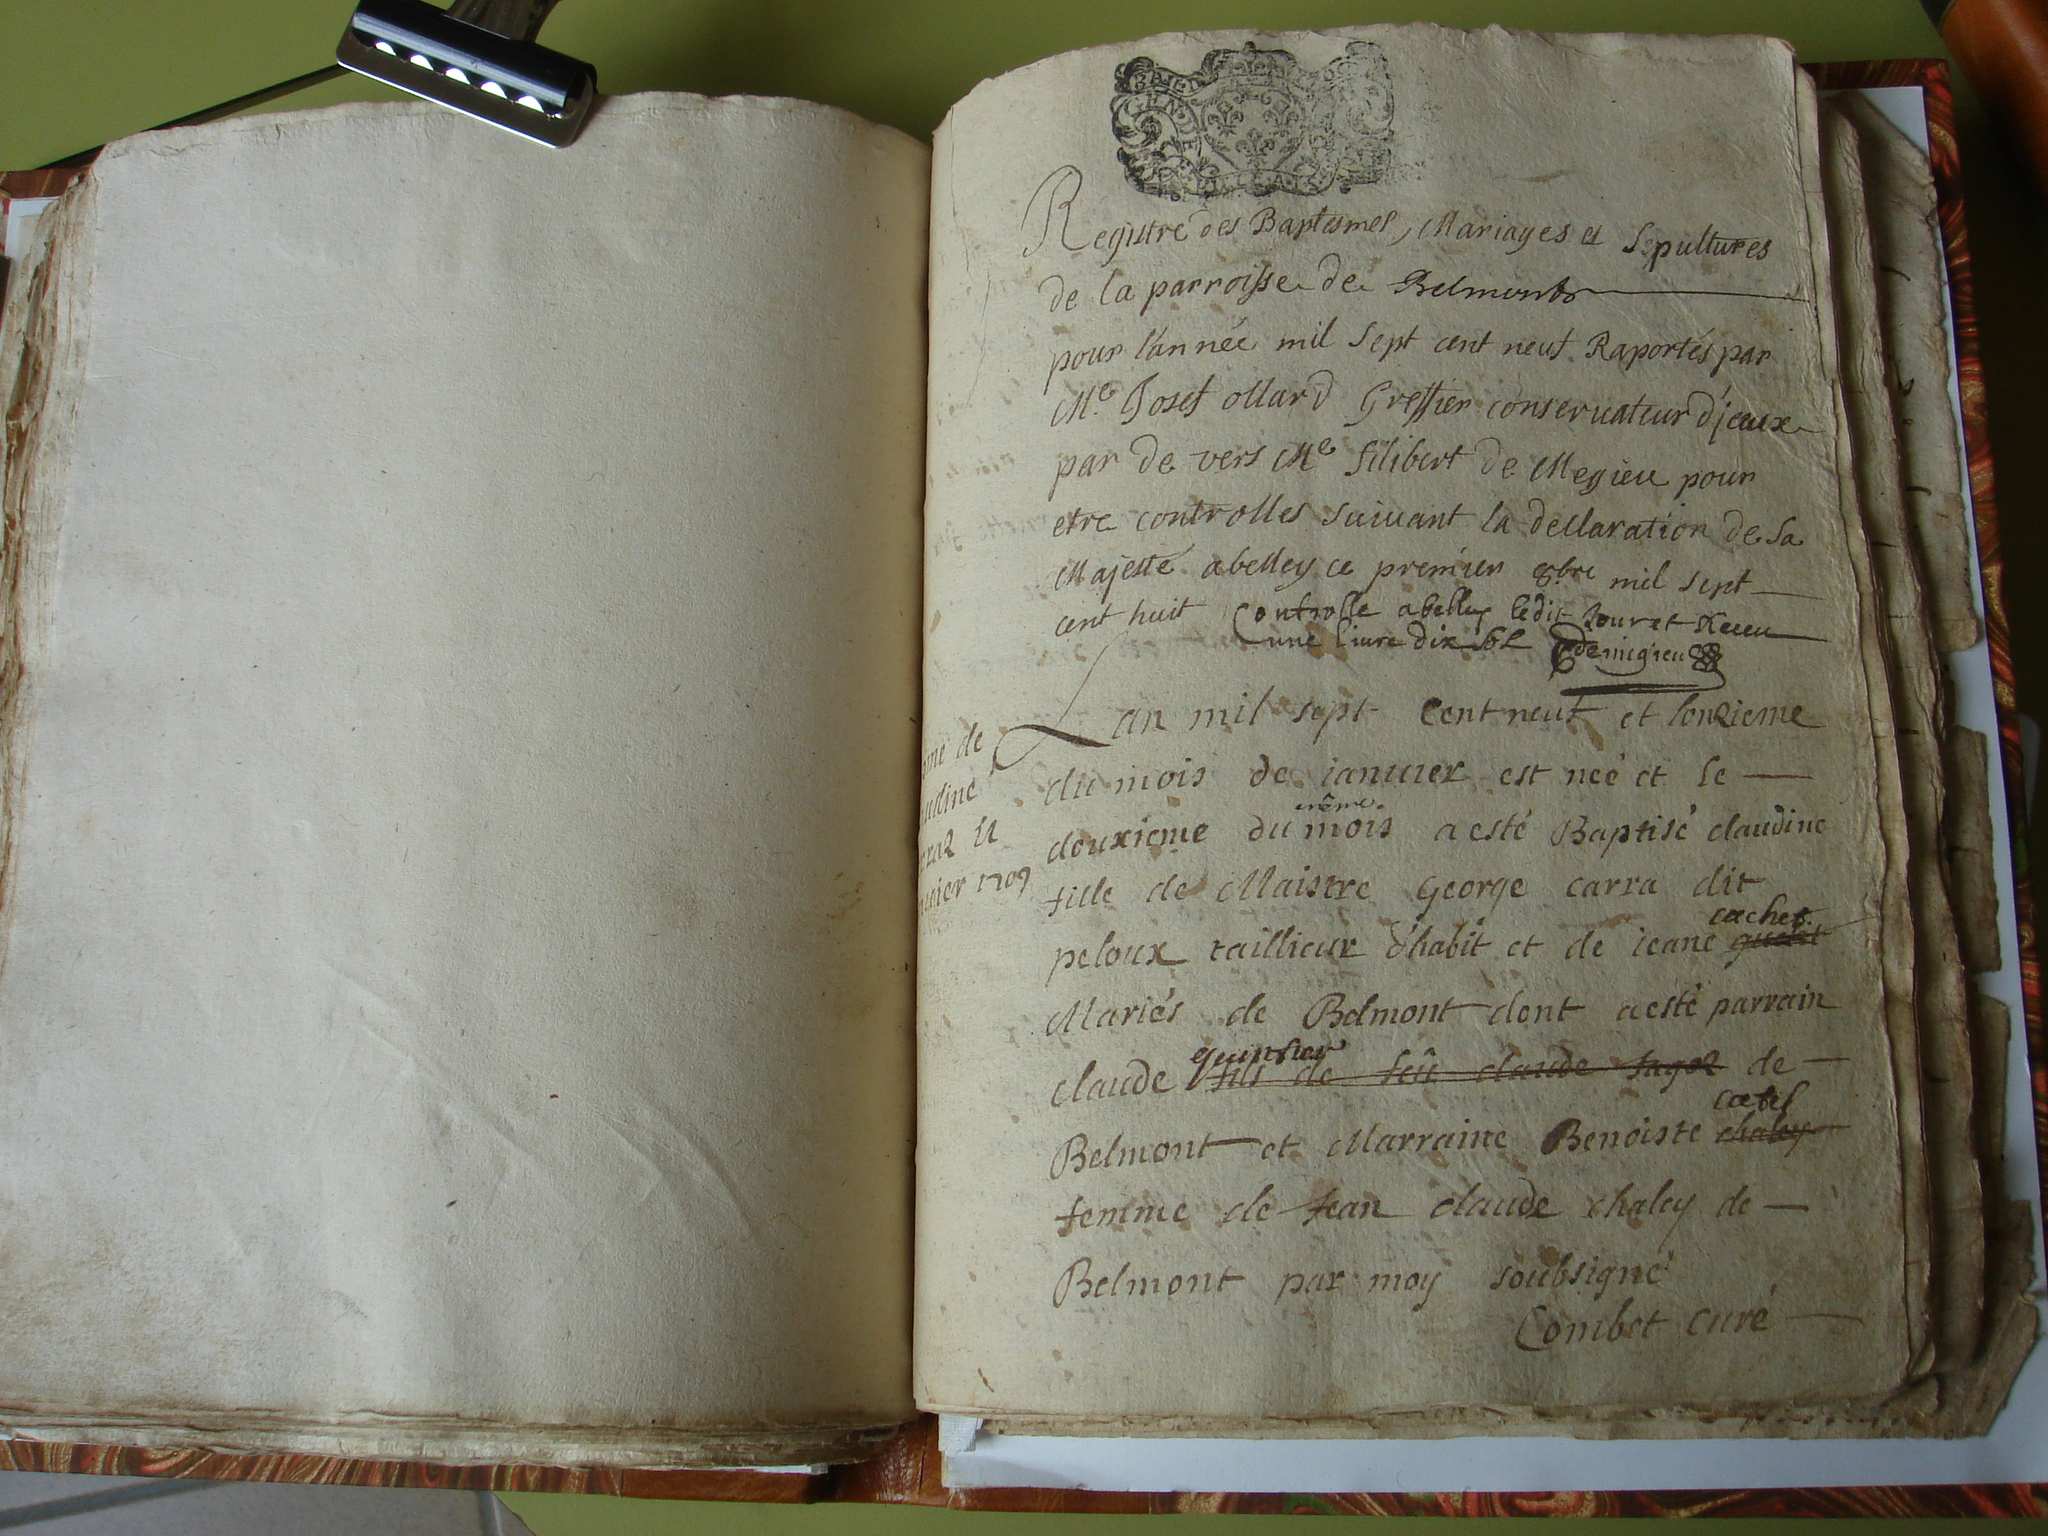 Registre des Baptesmes, Mariages et Sepultures
de la parroisse de Belmont
pour l'année mil sept cent neuf Raportés par
Me Josef ollard Greffier conservateur d'iceux
par de vers Me filibert de Megieu pour
etre controlles suivant la declaration de sa
Majesté abelley ce premier 8bre mil sept
cent huit Controlle abelley ledit Jour et Receu
une livre dix sols demigieu
Lan mil sept Cent neuf et lonzieme
me de
du mois de ianuier est neé et le
udine
même
douxieme du mois a esté Baptisé claudine
rraz 11
fille de Maistre George carra dit
uier 1709
cachet
peloux taillieur d'habit et de ieane
Mariés de Belmont dont a esté parrain
claude fils de feû claude de
Belmont et Marraine Benoiste chaley
femme de Jean claude chaley de
Belmont par moy soubsigné
Combet Curé